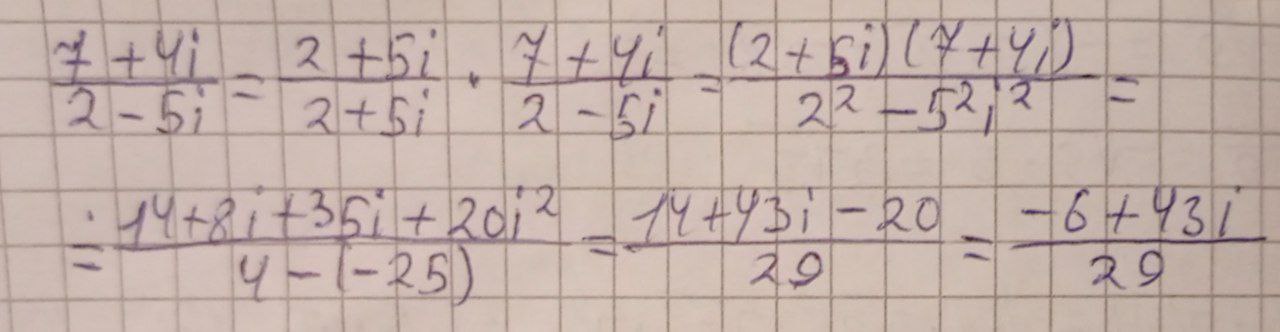 (7+4i)/(2-5i) = (2+5i)/(2+5i) · (7+4i)/(2-5i) = ((2+5i)(7+4i))/(2²-5²i²) =
= (14+8i+35i+20i²)/(4-(-25)) = (14+43i-20)/29 = (-6+43i)/29